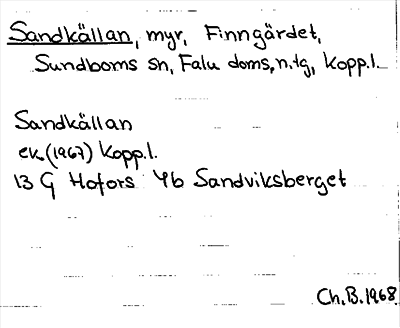 Sandkällan, myr, Finngärdet,
Sundborns sn, Falu doms.n.tg, Kopp.l.
Sandkällan
ek.(1967) Kopp.l.
13 G Hofors 4b Sandviksberget
Ch.B.1968